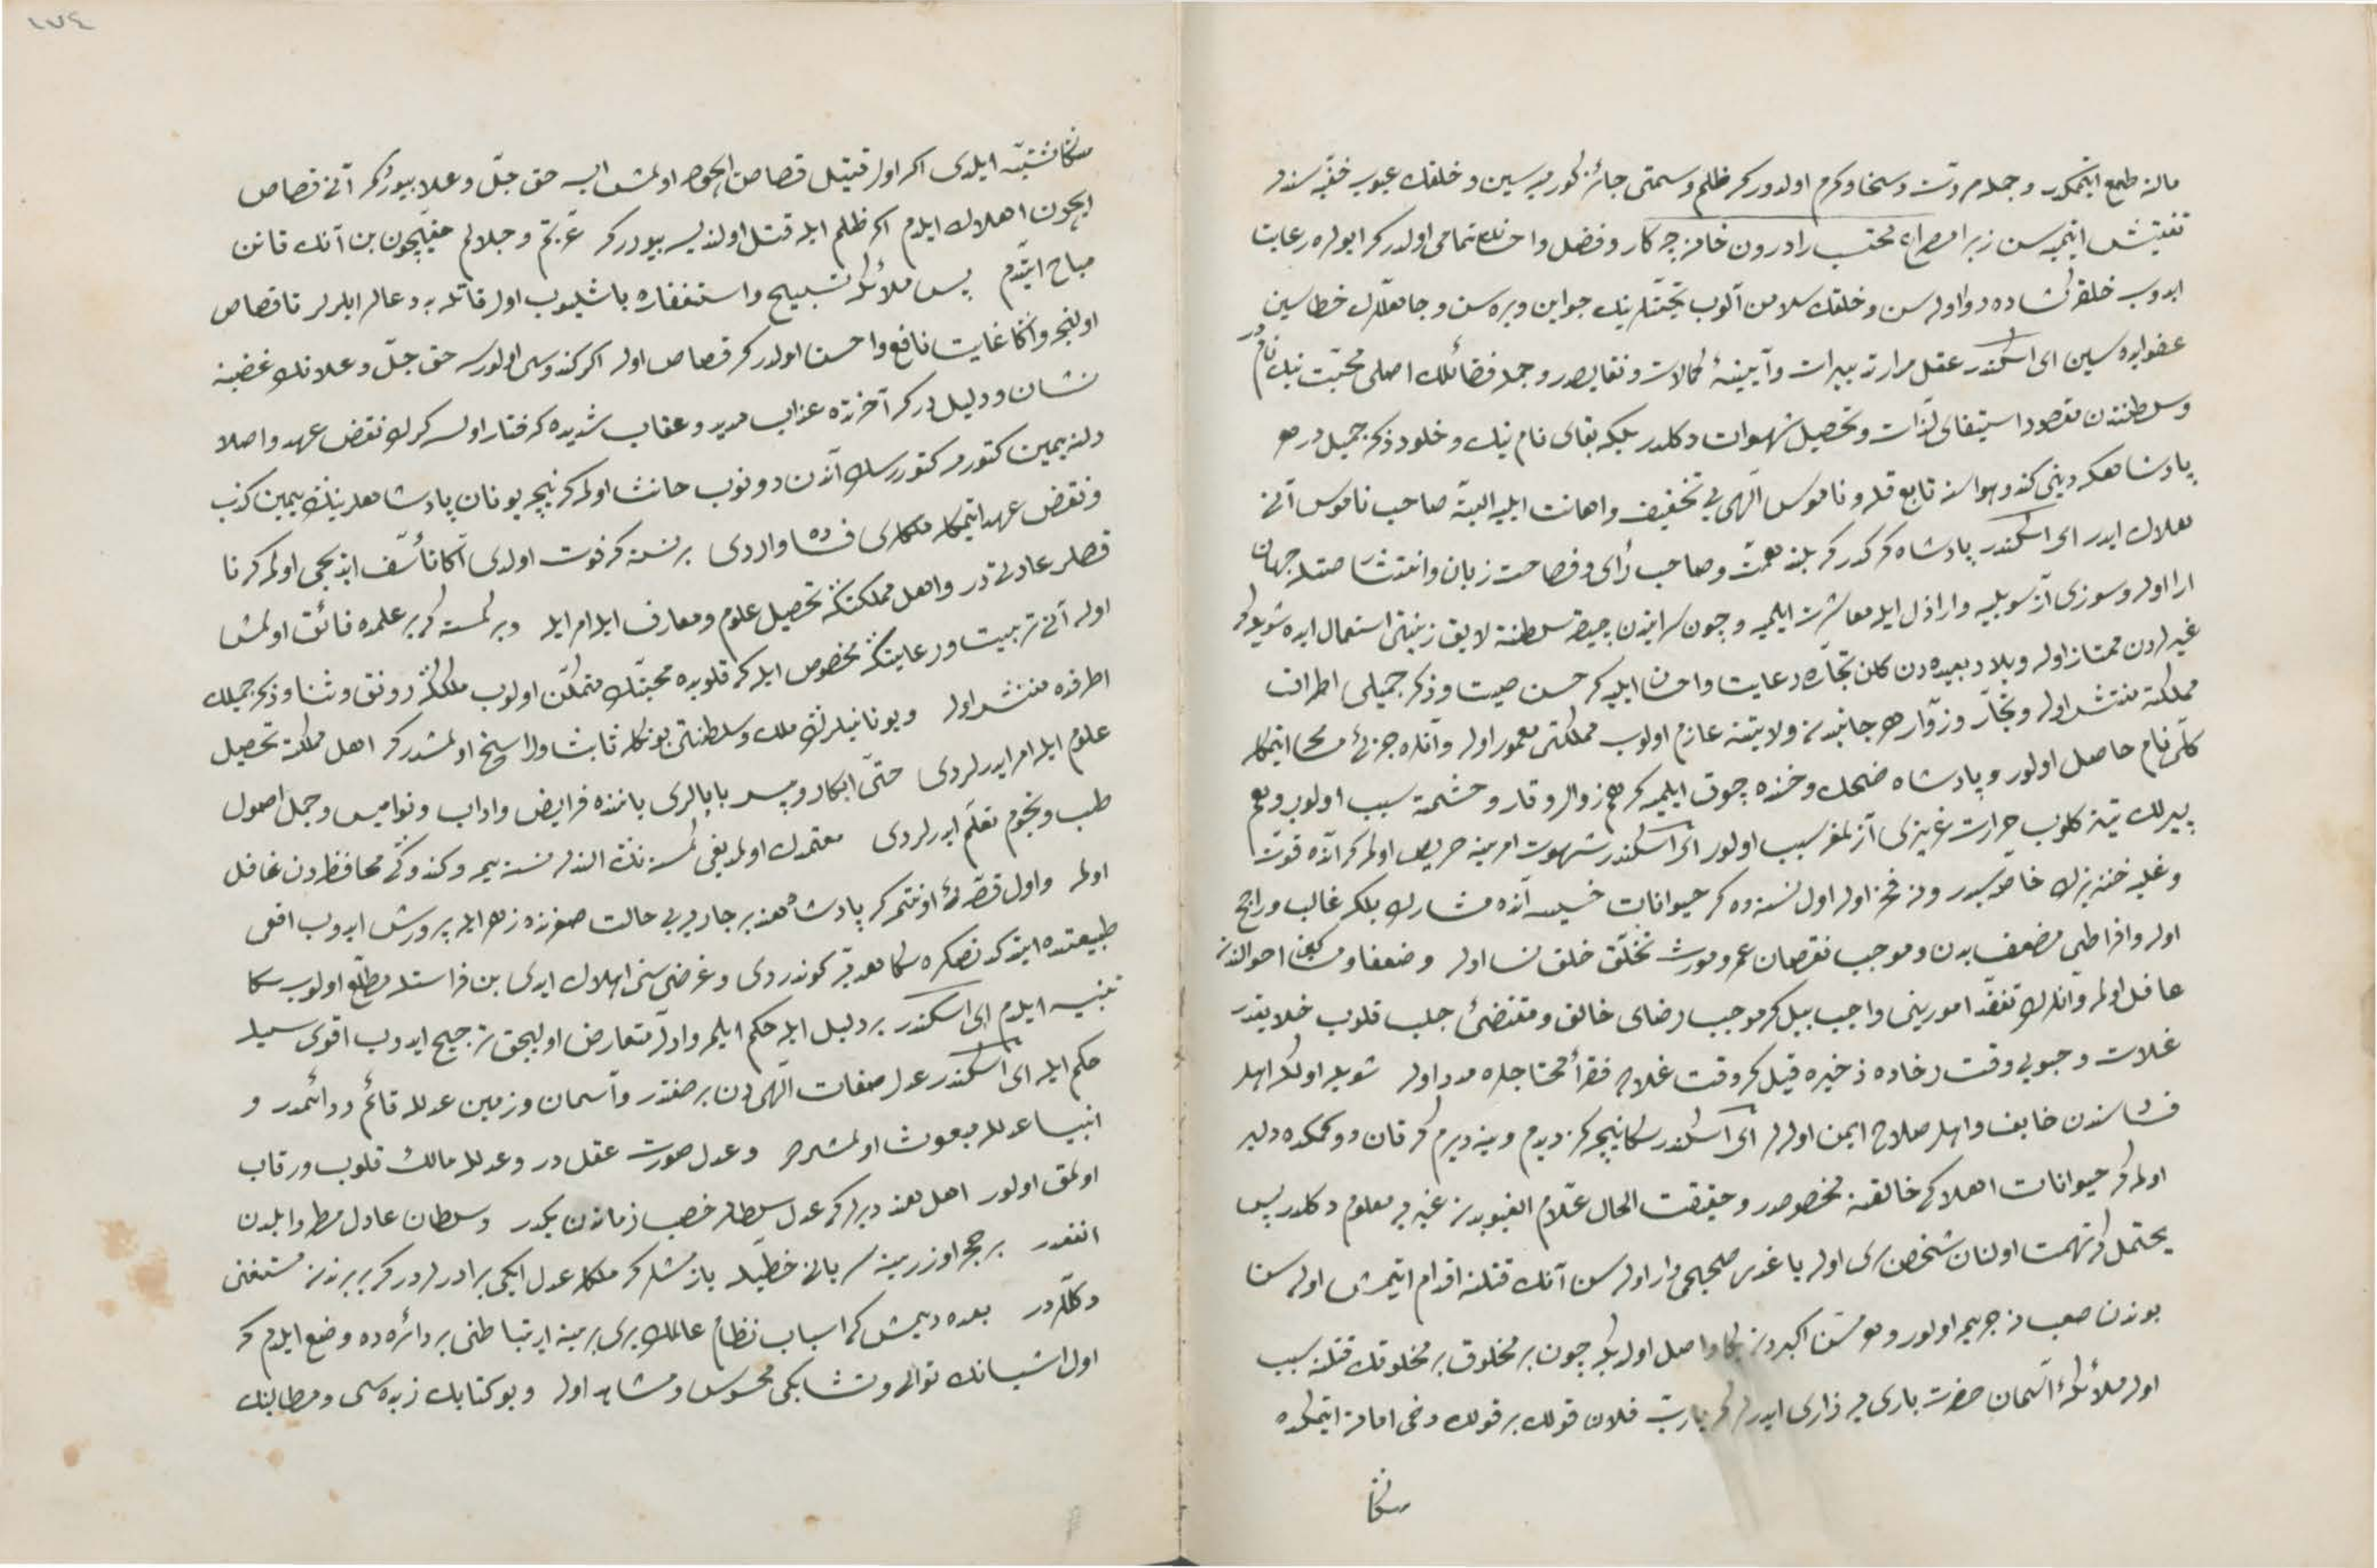 مالنه طمع ایتمکدر و جمله مروت و سخا و کرم اولدرکه ظلم و سمتی جائز کورمیه‌سین و خلقک عیوب خفیه‌سندن
تفتیش ایتمیه‌سن زیرا مصراع محتسب را درون خانه چه کار و فضل و احسانک تمامی اولدرکه ابواب رعایت
ایدوب خلقه کشاده‌رو اوله‌سن و خلقک سلامن آلوب تحیتلرینک جوابن ویره‌سن و جاهللرک خطاسین
عفو ایده‌سین ای اسکندر عقل مدار تدبیرات و آیینهٔ کمالات و نقایصدر و جمله فضائلک اصلی محبت نیک نامدر
و سلطنتدن مقصود استیفای لذات و تحصیل شهوات دکلدر بلکه بقای نام نیک و خلود ذکر جمیلدر هر
پادشاهکه دینی کندو هواسنه تابع قیله و ناموس الهی‌یی تخفیف و اهانت ایلیه البته صاحب ناموس آنی
هلاک ایدر ای اسکندر پادشاه کرکدرکه بلند همت و صاحب رأی و فصاحت زبان و انتشار صیتله جهان
ارا اوله و سوزی آز سویلیه و اراذل ایله معاشرت ایلمیه و چون سرایندن چیقه سلطنته لایق زینتی استعمال ایده شویله‌که
غیرلردن ممتاز اوله و بلاد بعیده‌دن کلن تجاره رعایت و احسان ایلیه که حسن صیت و ذکر جمیلی اطراف
مملکته منتشر اوله و تجار و زوار هر جانبدن ولایتنه عازم اولوب مملکتی معمور اوله و آنلره جزئی مسامحه ایتمکله
کلی نام حاصل اولور و پادشاه ضحک و خنده چوق ایلمیه که هم زوال وقار و حشمته سبب اولور و هم
پیرلک تیز کلوب حرارت غریزی آزلمغه سبب اولور ای اسکندر شهوت امرینه حریص اولمه که آنده قوت
و غلبه خنزیرک خاصه‌سیدر و نه فخر اوله اول نسنه‌ده که حیوانات خسیسه آنده مشارک بلکه غالب و راجح
اوله و افراطی مضعف بدن و موجب نقصان عمر و مورث تخلق خلق نسا اوله و ضعفا و مساکین احوالندن
غافل اولمه و آنلرک تفقد امورینی واجب بیل که موجب رضای خالق و مقتضئ جلب قلوب خلایقدر
غلات و حبوبی وقت رخاده ذخیره قیل که وقت غلاده فقرا و محتاجلره مدد اوله شویله اوله که اهل
فساد سندن خایف و اهل صلاح ایمن اوله‌لر ای اسکندر سکا نیچه کز دیدم و ینه دیرم که قان دوکمکده دلیر
اولمه که حیوانات اهلاکی خالقنه مخصوصدر و حقیقت الحال علام الغیوبدن غیری‌یه معلوم دکلدر پس
یحتمل که تهمت اولنان شخص بری اوله یا عذر صحیحی وار اوله سن آنک قتلنه اقدام ایتمش اوله‌سن
بوندن صعب نه جریمه اولور و هرمس اکبردن بکا واصل اولدی که چون بر مخلوق بر مخلوقک قتلنه سبب
اوله ملائکهٔ آسمان حضرت باری‌یه زاری ایدرلر که یا رب فلان قولک بر قولک دخی اماته ایتمکده
سکا
سکا تشبه ایلدی اکر اول قتیل قصاص ایچون اولمش ایسه حق جل و علا بیورر که آنی قصاص
ایچون اهلاک ایلدم اکر ظلم ایله قتل اولندیسه بیوررکه عزتم و جلالم حقیچون بن آنک قانن
مباح ایتدم پس ملائکه تسبیح و استغفاره باشلیوب اول قاتله بد دعالر ایلرلر تا قصاص
اولنجه و اکا غایت نافع و احسن اولدرکه قصاص اوله اکر کندوسی اولورسه حق جل و علانک غضبنه
نشان و دلیلدر که آخرتده عذاب مدید و عقاب شدیده کرفتار اولسه کرک نقض عهد و اصلا
دلنه یمین کتورمه کتوررسک آندن دونوب حانث اولمه که نیچه یونان پادشاهلرینک یمین کذب
و نقض عهد ایتمکله ملکلری فساده واردی بر نسنه که فوت اولدی اکا تأسف ایدیجی اولمه که نا
قصلر عادتیدر و اهل مملکتکه تحصیل علوم و معارف ایله امر ایله و بر کمسنه که بر علمده فائق اولمش
اوله آنی تربیت و رعایتکه مخصوص ایله که قلوبده محبتک متمکن اولوب ملککه رونق و ثنا و ذکر جمیلک
اطرافه منتشر اوله و یونانیلرک ملک و سلطنتی بونکله ثابت و راسخ اولمشدرکه اهل مملکته تحصیل
علوم ایله امر ایدرلردی حتی ابکار و پسر بابالری یاننده فرایض و آداب و نوامیس و جمل اصول
طب و نجوم تعلم ایدرلردی معتمدک اولمدیغی کمسنه‌نک الندن نسنه ییمه و کندوکی محافظه‌دن غافل
اولمه و اول قصه‌یی اونتمه که پادشاه هند بر جاریه‌یی حالت صغرنده زهر ایله پرورش ایدوب افعی
طبیعتنده ایتدکدنصکره سکا هدیه کوندردی و غرضی سنی اهلاک ایدی بن فراستله مطلع اولوب سکا
تنبیه ایلدم ای اسکندر بر دلیل ایله حکم ایلمه و ادله متعارض اولیجق ترجیح ایدوب اقوی‌سیله
حکم ایله ای اسکندر عدل صفات الهی‌دن بر صفتدر و آسمان و زمین عدلله قائم و دائمدر و
انبیا عدلله مبعوث اولمشلردر و عدل صورت عقلدر و عدلله مالک قلوب و رقاب
اولمق اولور اهل هند دیرلرکه عدل سلطان خصب زماندن یکدر و سلطان عادل مطر وابلدن
انفعدر بر حجر اوزرینه سریانی خطیله یازمشلر که ملکله عدل ایکی برادرلردرکه بربرندن مستغنی
دکللردر بعده دیمش که اسباب نظام عالمک بری برینه ارتباطنی بر دائره‌ده وضع ایلدم که
اول اشیانک توالی و تشابکی محسوس و مشاهد اوله و بو کتابک زبده‌سی و مطالبنک
١٧٤